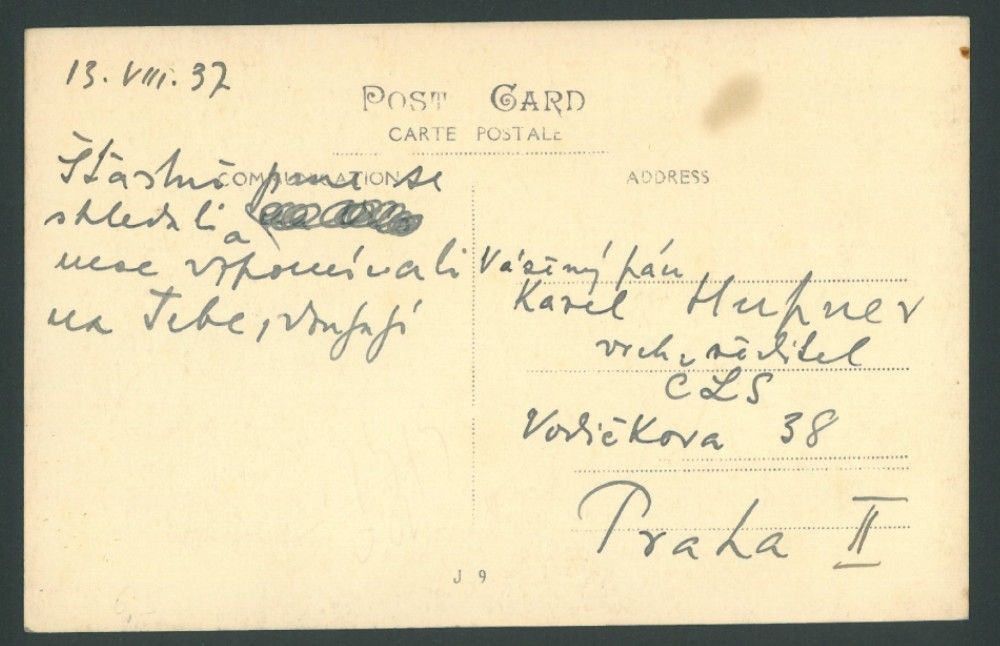 13. VIII. 37
POST CARD
CARTE POSTALE
COMMUNICATION
ADDRESS
Šťastně jsme se
shledali a
moc vzpomínali
na Tebe,
Vážený pán
Karel Hupner
vrch. ředitel
ČLS
Vodičkova 38
Praha II
J 9